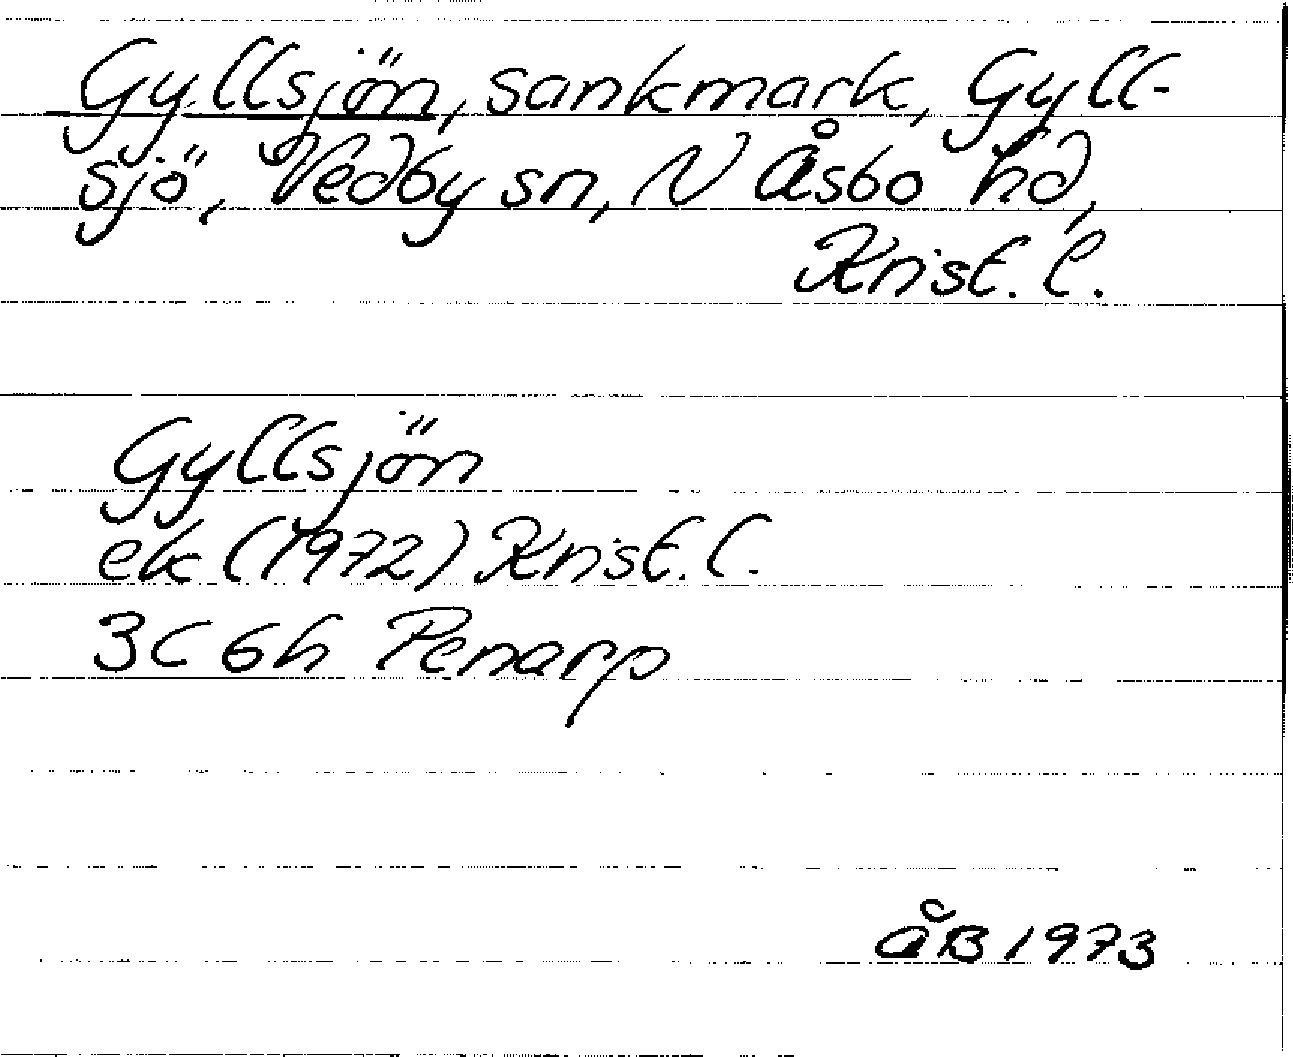 Gyllsjön, sankmark, Gyll-
sjö, Vedby sn, N Åsbo hd,
Krist. l.
Gyllsjön
ek (1972) Krist. l.
3C 6h Penarp
ÅB 1973